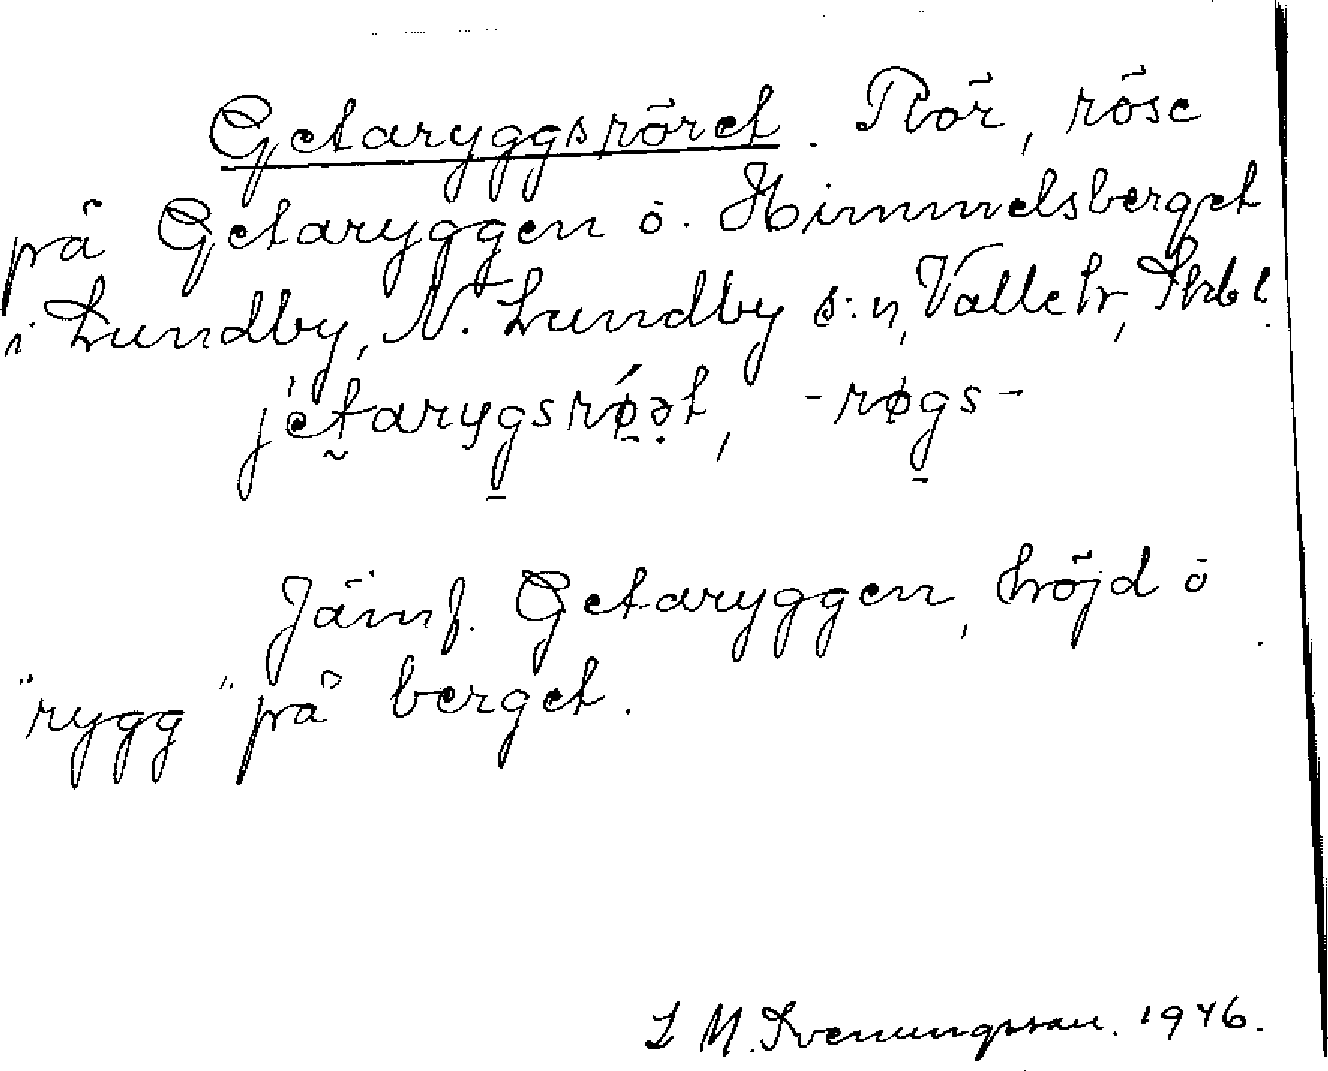 Getaryggsröret. Rör, röse
på Getaryggen ö. Himmelsberget
i Lundby, N. Lundby s:n, Valle hr, Skbl.
jetarygsrø̀ət, -røgs-
Jämf. Getaryggen, höjd ö
"rygg" på berget.
L M. Svenungsson. 1946.